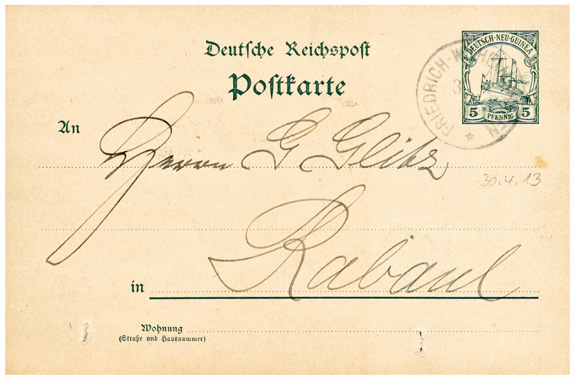 Deutsche Reichspost
Postkarte
DEUTSCH-NEU-GUINEA
5 PFENNIG 5
FRIEDRICH-W
An
Herrn G Glitz,
30.4.13
in Rabaul
Wohnung
(Straße und Hausnummer)